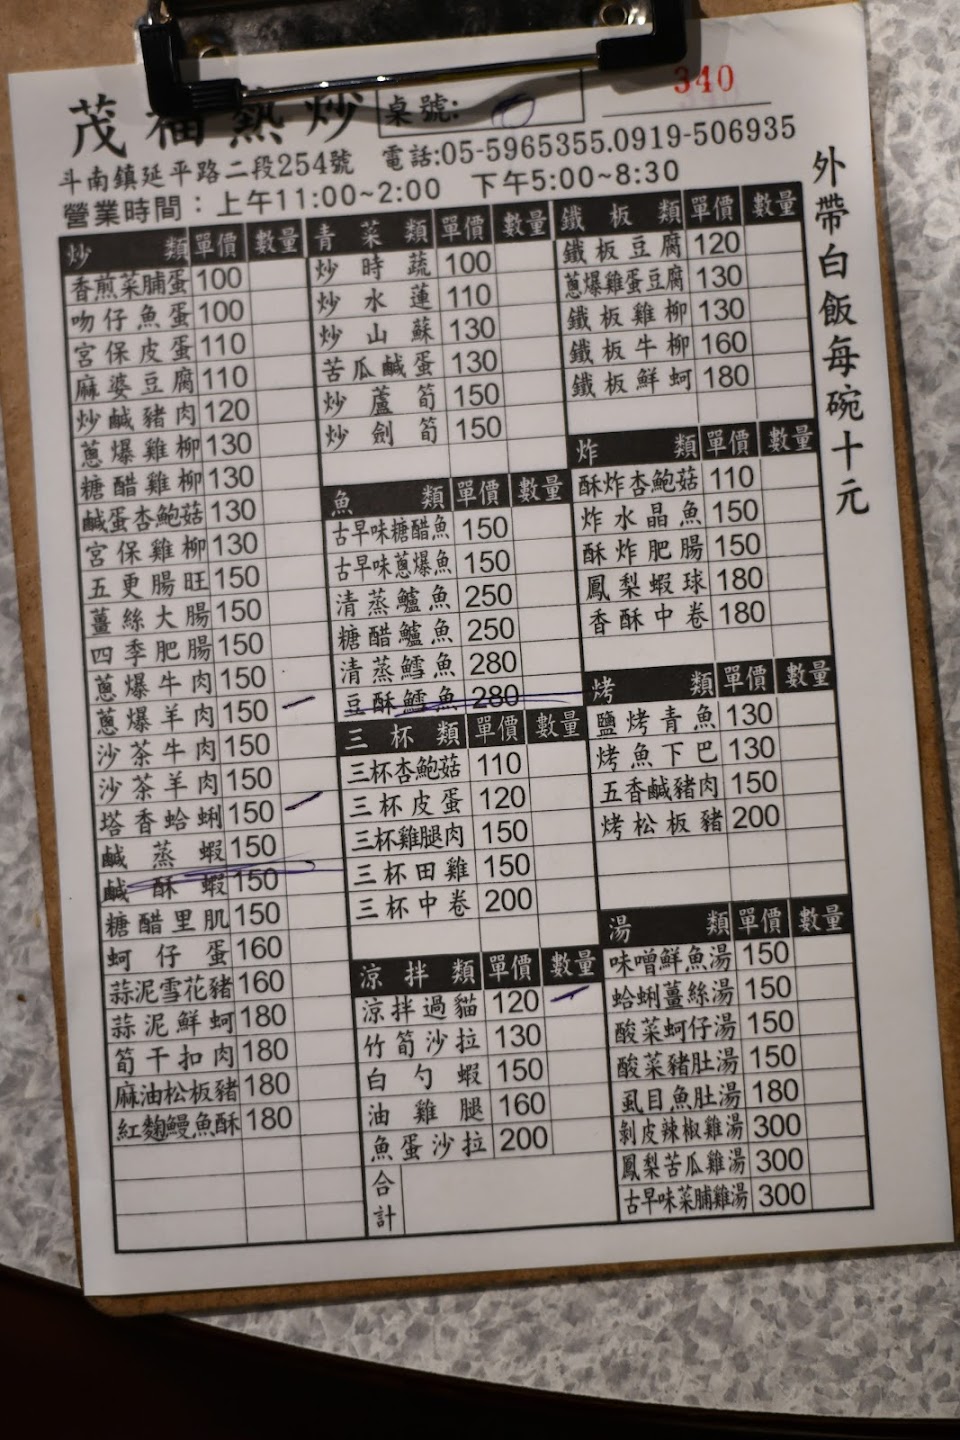 茂福熱炒
桌號:
340
斗南鎮延平路二段254號 電話:05-5965355.0919-506935
營業時間：上午11:00~2:00 下午5:00~8:30
外帶白飯每碗十元
炒類 單價 數量
香煎菜脯蛋 100
吻仔魚蛋 100
宮保皮蛋 110
麻婆豆腐 110
炒鹹豬肉 120
蔥爆雞柳 130
糖醋雞柳 130
鹹蛋杏鮑菇 130
宮保雞柳 130
五更腸旺 150
薑絲大腸 150
四季肥腸 150
蔥爆牛肉 150
蔥爆羊肉 150
沙茶牛肉 150
沙茶羊肉 150
塔香蛤蜊 150
鹹蒸蝦 150
鹹酥蝦 150
糖醋里肌 150
蚵仔蛋 160
蒜泥雪花豬 160
蒜泥鮮蚵 180
筍干扣肉 180
麻油松板豬 180
紅麴鰻魚酥 180
青菜類 單價 數量
炒時蔬 100
炒水蓮 110
炒山蘇 130
苦瓜鹹蛋 130
炒蘆筍 150
炒劍筍 150
魚類 單價 數量
古早味糖醋魚 150
古早味蔥爆魚 150
清蒸鱸魚 250
糖醋鱸魚 250
清蒸鱈魚 280
豆酥鱈魚 280
三杯類 單價 數量
三杯杏鮑菇 110
三杯皮蛋 120
三杯雞腿肉 150
三杯田雞 150
三杯中卷 200
涼拌類 單價 數量
涼拌過貓 120
竹筍沙拉 130
白勺蝦 150
油雞腿 160
魚蛋沙拉 200
合計
鐵板類 單價 數量
鐵板豆腐 120
蔥爆雞蛋豆腐 130
鐵板雞柳 130
鐵板牛柳 160
鐵板鮮蚵 180
炸類 單價 數量
酥炸杏鮑菇 110
炸水晶魚 150
酥炸肥腸 150
鳳梨蝦球 180
香酥中卷 180
烤類 單價 數量
鹽烤青魚 130
烤魚下巴 130
五香鹹豬肉 150
烤松板豬 200
湯類 單價 數量
味噌鮮魚湯 150
蛤蜊薑絲湯 150
酸菜蚵仔湯 150
酸菜豬肚湯 150
虱目魚肚湯 180
剝皮辣椒雞湯 300
鳳梨苦瓜雞湯 300
古早味菜脯雞湯 300